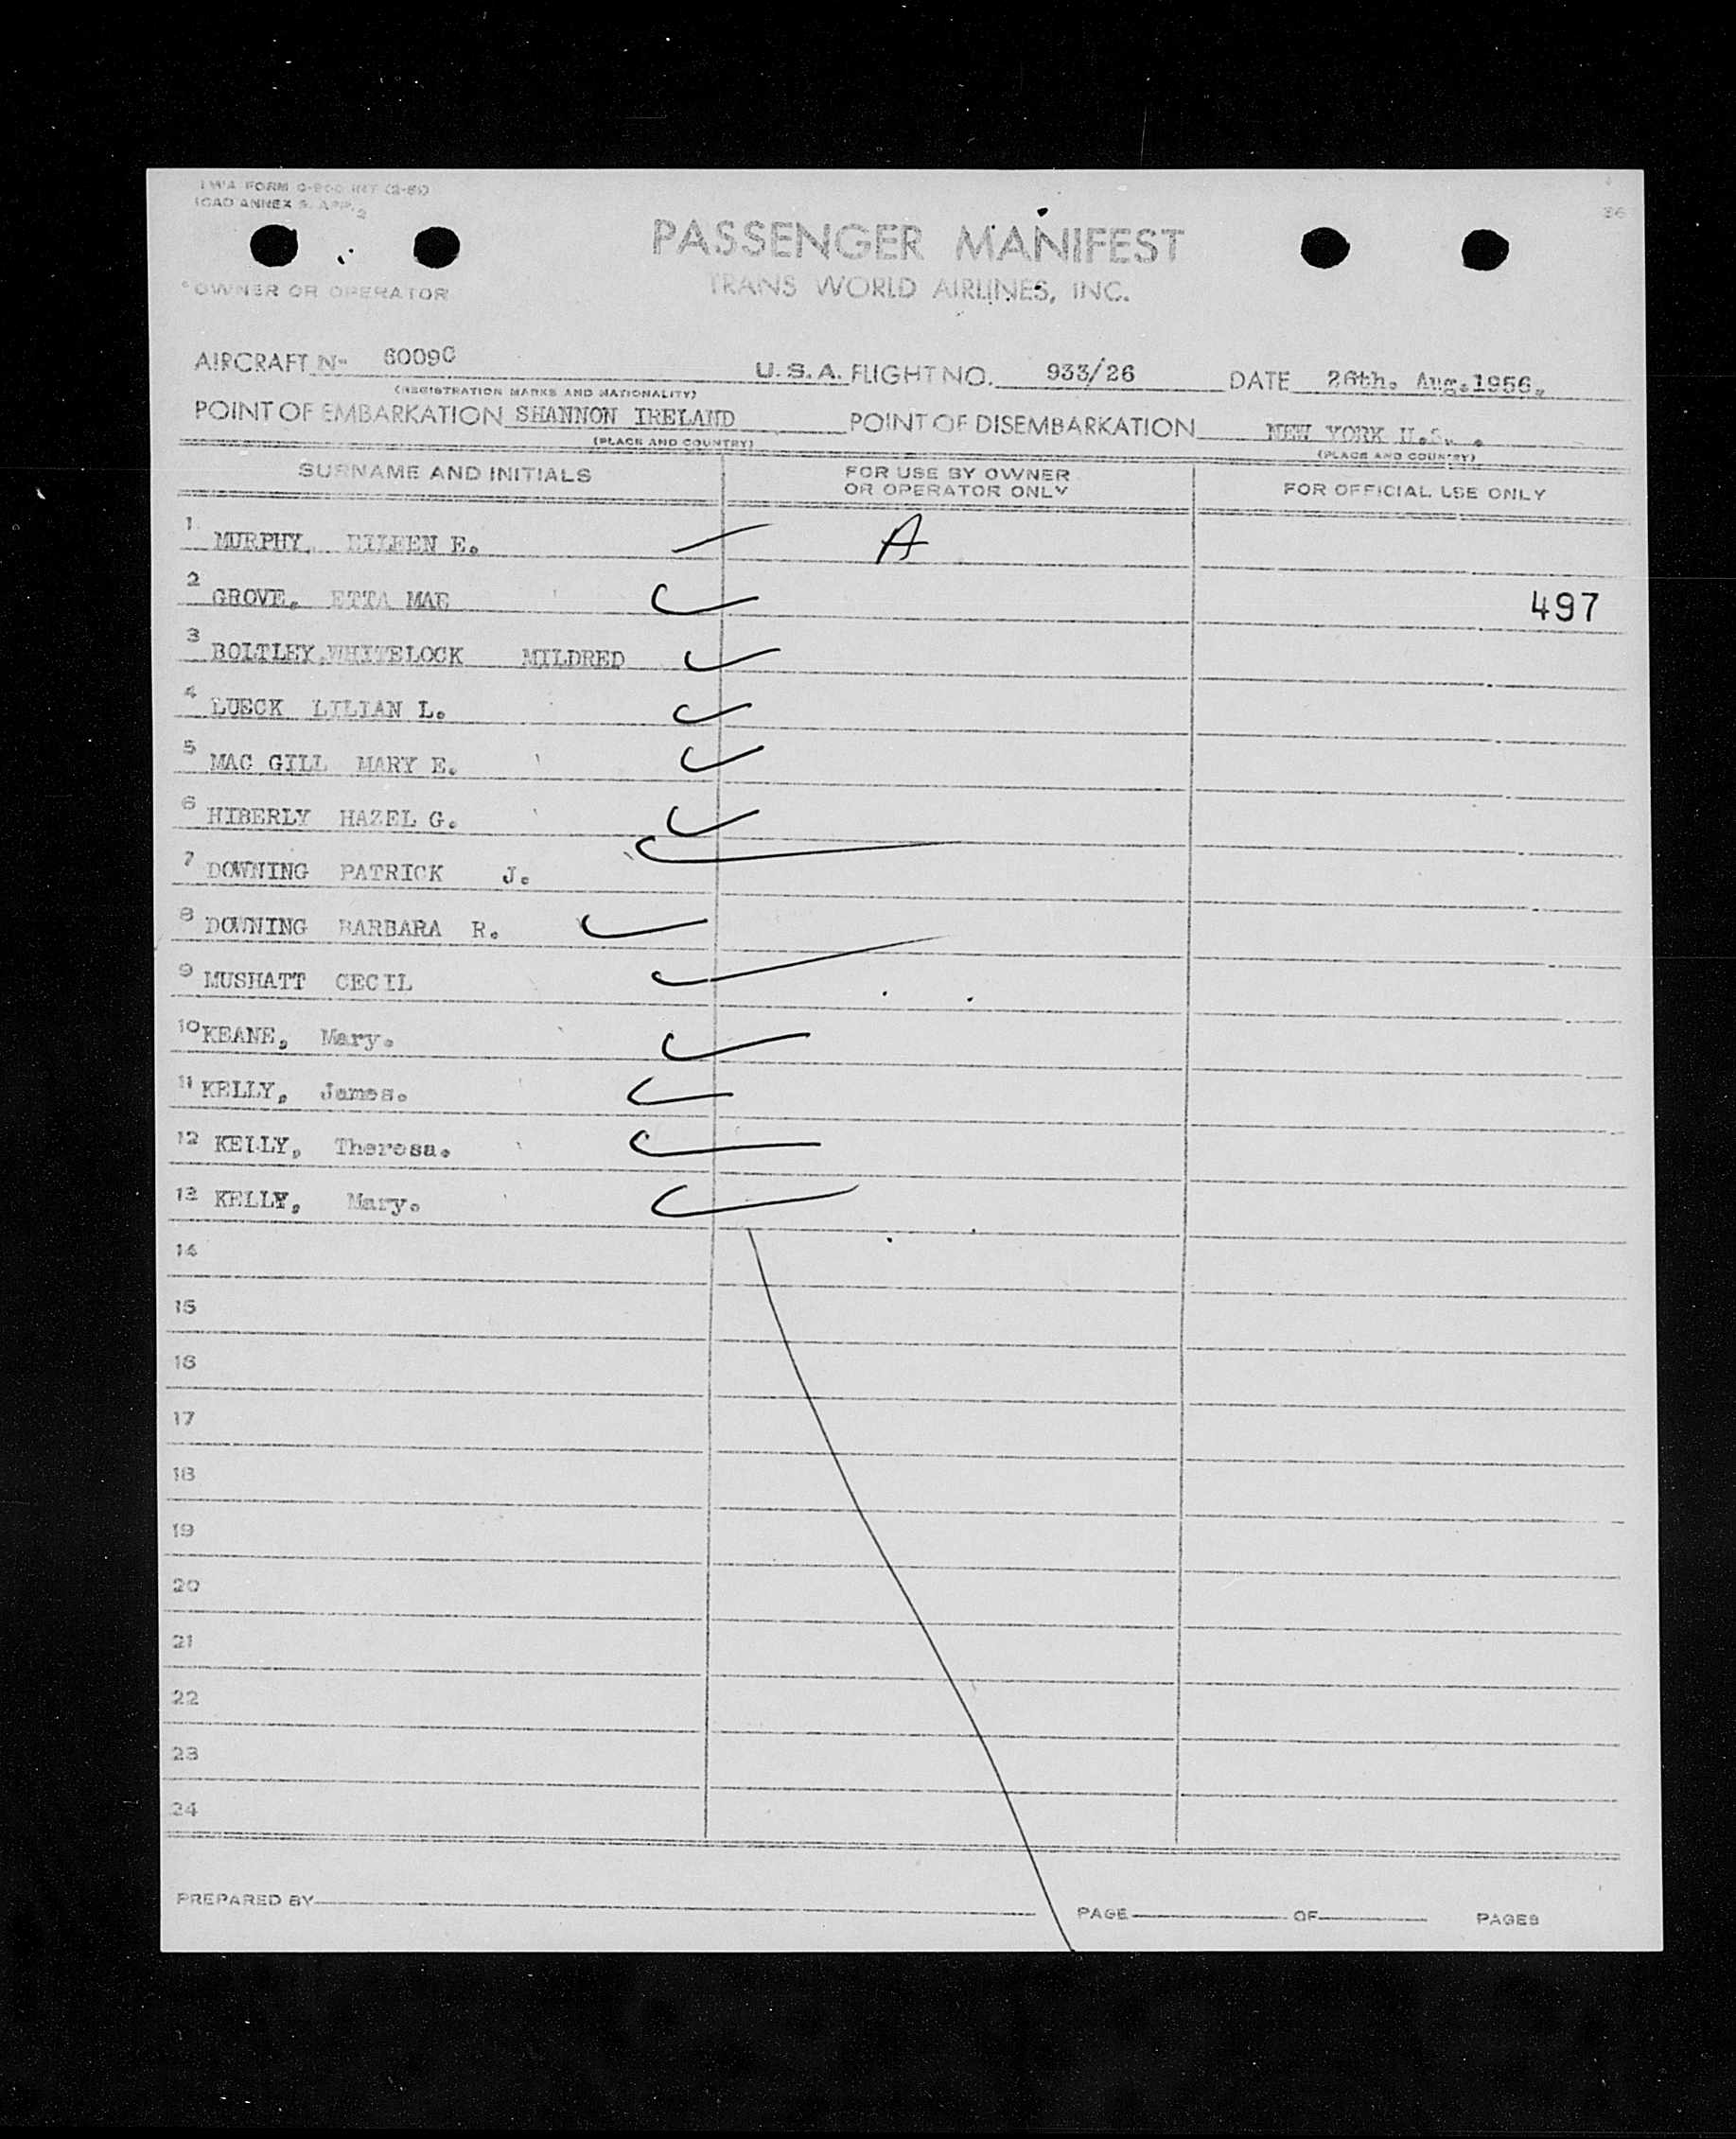 TWA FORM O-800 INT (2-51)
ICAO ANNEX 9. APP. 2
36
PASSENGER MANIFEST
*OWNER OR OPERATOR
TRANS WORLD AIRLINES, INC.
AIRCRAFT N- 6009C U.S.A. FLIGHT NO. 933/26 DATE 26th. Aug.1956.
(REGISTRATION MARKS AND NATIONALITY)
POINT OF EMBARKATION SHANNON IRELAND POINT OF DISEMBARKATION NEW YORK U.S. .
(PLACE AND COUNTRY) (PLACE AND COUNTRY)
SURNAME AND INITIALS FOR USE BY OWNER OR OPERATOR ONLY FOR OFFICIAL USE ONLY
1 MURPHY, EILEEN E. A
2 GROVE, ETTA MAE 497
3 BOLTLEY,WHITELOCK MILDRED
4 LUECK LILIAN L.
5 MAC GILL MARY E.
6 HIBERLY HAZEL G.
7 DOWNING PATRICK J.
8 DOWNING BARBARA R.
9 MUSHATT CECIL
10 KEANE, Mary.
11 KELLY, James.
12 KELLY, Theresa.
13 KELLY, Mary.
14
15
16
17
18
19
20
21
22
23
24
PREPARED BY PAGE OF PAGES